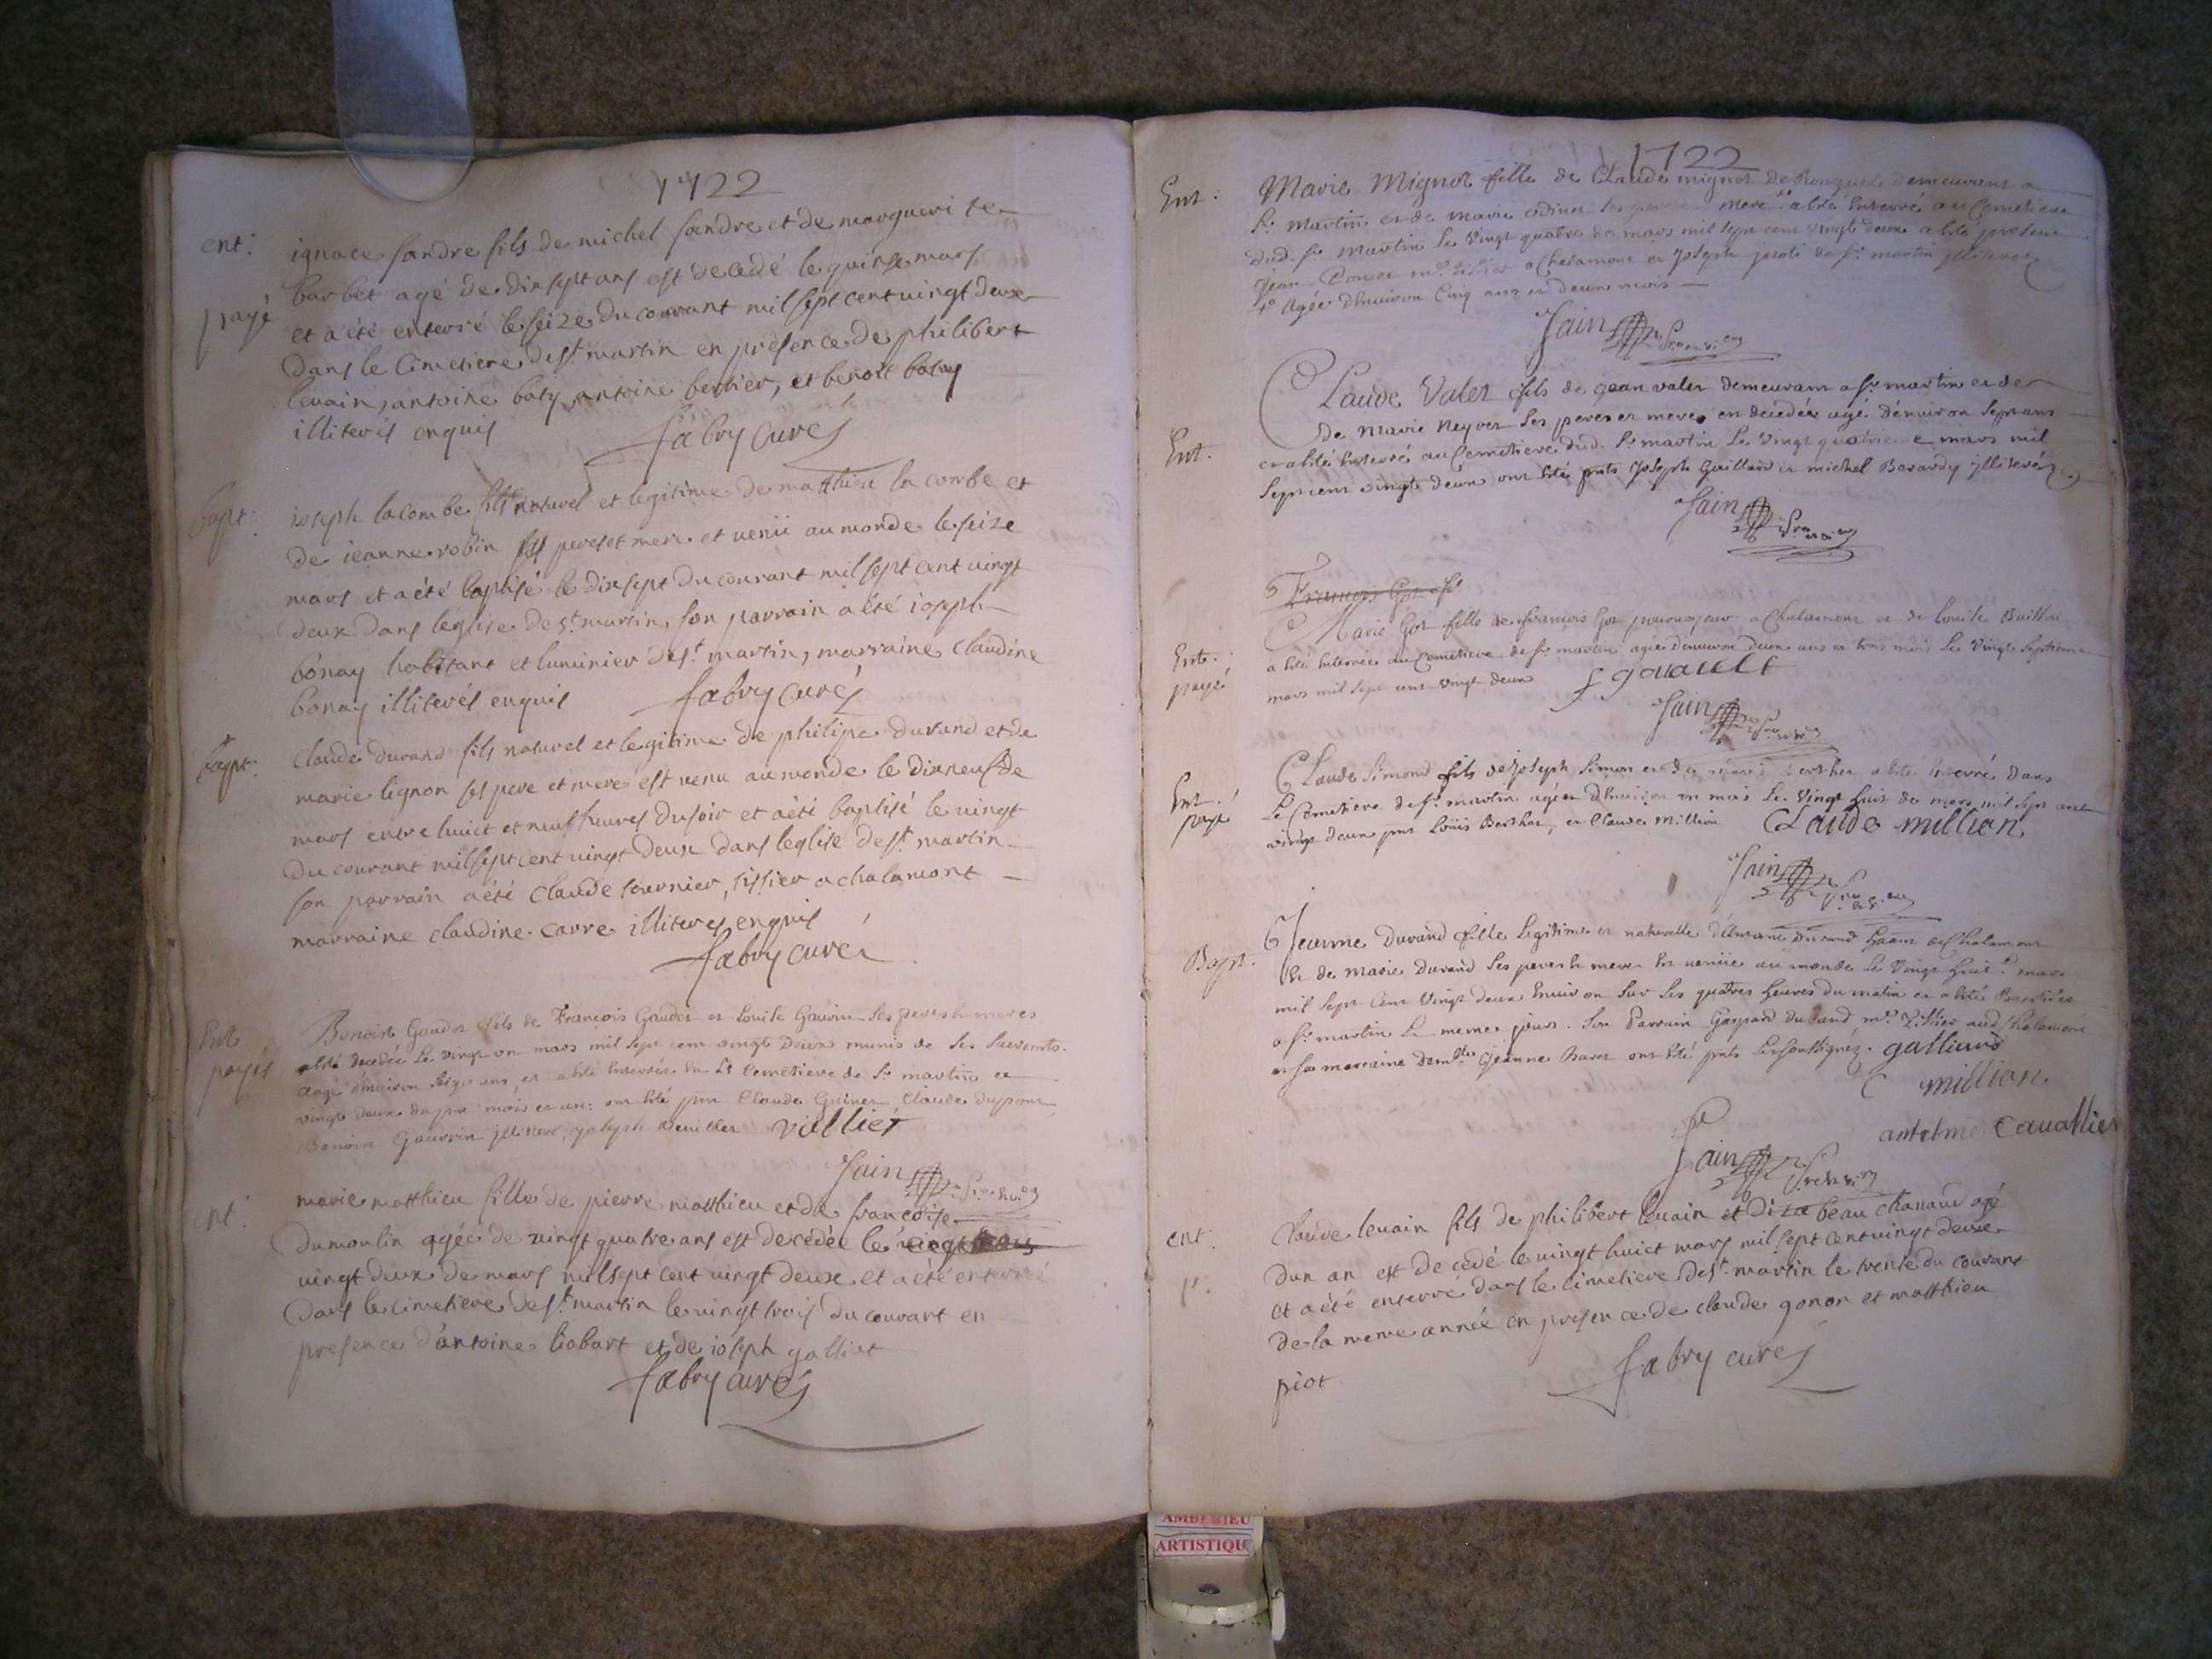 1722
ent. ignace sandre fils de michel sandre et de margueri te
barbet agé de dixsept ans est decedé le quinse mars
payé et a été enterré le seize du courant mil sept cent vingt deux
dans le cimetiere de st. martin en présence de philibert
leuain, antoine baty, antoine berlier, et benoit baty
illiterés enquis
fabry curé
bapt. ioseph lacombe fils naturel et legitime de matthieu la combe et
de ieanne robin ses peres et mere et venü au monde le seize
mars et a été baptisé le dixsept du courant mil sept cent vingt
deux dans l'eglise de st. martin, son parrain a été ioseph
bonay habitant et luminier de st. martin, marraine claudine
bonay illiterés enquis
fabry curé
bapt. claude durand fils naturel et legitime de philipe durand et de
marie lignon ses pere et mere est venu au monde le dixneuf de
mars entre huict et neuf heures du soir et a été baptisé le vingt
du courant mil sept cent vingt deux dans l'eglise de st. martin
son parrain a été claude fournier, tissier a chalamont
marraine claudine carre illiteres enquis
fabry curé
Ent. Benoist Gaudet fils de François Gaudet et Louise Gauvin ses peres & meres
payés a été decedée le vingt un mars mil sept cent vingt deux munis de ses sacremts.
aagé d'environ seize ans, et a été enterrée au cemetiere de st. martin ce
vingt deux du pnt mois et an: ont été pnt Claude Guinet Claude dupont
Benoist Gauvrin illiteré, joseph vullier
Jain
ent. marie matthieu fille de pierre matthieu et de francoise
dumoulin agée de vingt quatre ans est decedée le
vingt deux de mars mil sept cent vingt deux et a été enterrée
dans le cimetiere de st. martin le vingt trois du courant en
presence d'antoine liobart et de ioseph galliat
fabry curé
1722
Ent. Marie Mignot fille de Claude mignot de Ronzuel demeurant a
st. martin et de marie mere a été enterré au cemetiere
dud. st. martin le vingt quatre de mars mil sept cent vingt deux a été present
Jean a Chalamont et Joseph de st. martin illiterez
agée d'environ cinq ans et deux mois
Jain
Claude Valet fils de jean valet demeurant a st. martin et de
de Marie Neyret ses peres et meres en decedée agé d'environ sept ans
Ent. et a été enterré au cemetiere dud. st. martin le vingt quatrieme mars mil
sept cent vingt deux ont été pnts Joseph Guillard et michel Berardy illiteréz
Jain
Francois Got fils
Marie Got fille de francois Got pourvoyeur a Chalamont et de Louise Buillon
Ent. a été enterrée au cemetiere de st. martin agée d'environ deux ans et trois mois le vingt septieme
payé mars mil sept cent vingt deux f gouault
Jain
Claude Simond fils de Joseph Simon et de marie berthet a été enterré dans
Ent. le cemetiere de st. martin agée d'environ un mois le vingt huit de mars mil sept cent
payé vingt deux pnts Loüis Berthet, et Claude Million Claude million
Jain
Jeanne Durand fille legitime et naturelle d'Antoine Durand de Chalamont
Bapt. et de Marie Durand ses peres & meres est venüe au monde le vingt huit e. mars
mil sept cent vingt deux environ sur les quatres heures du matin et a été Baptisée
a st. martin le meme jour. son Parrain Gaspard Durand mr. Tissier aud Chalamont
et sa marraine demlle Jeanne ont été pnts les soussignez. gallien
million
antelme Cavallier
Jain
ent. claude leuain fils de philibert leuain et diza beau chanaud agé
d'un an est decedé le vingt huict mars mil sept cent vingt deux
p. et a été enterré dans le cimetiere de st. martin le trente du courant
de la meme année en presence de claude gonon et matthieu
piot
fabry curé
AMBERIEU
ARTISTIQU